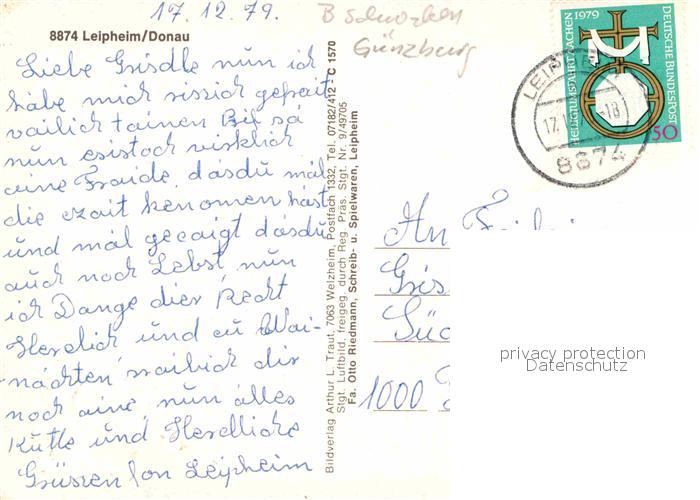 17.12.79.
8874 Leipheim/Donau
Liebe Grisdle nun ich
habe mich rissich gefreit
vailich tainen Bif sa
nun esistoch virklich
eine Fraide dasdu mal
die ezait henomen hast
und mal gecaigt dasdu
auch noch Lebst, nun
ich Dange dier Recht
Herzlich und zu Wai-
nachten wailich dir
noch eine nun alles
Kutte und Herlliche
Grüssen fon Leipheim
Bildverlag Arthur L. Traut, 7063 Welzheim, Postfach 1332, Tel. 07182/412 · C 1570
Stgt. Luftbild, freigeg. durch Reg. Präs. Stgt. Nr. 9/49705
Fa. Otto Riedmann, Schreib- u. Spielwaren, Leipheim
Günzburg
HEILIGTUMSFAHRT AACHEN 1979
DEUTSCHE BUNDESPOST
50
8874
An
Gris
Süd
1000
privacy protection
Datenschutz